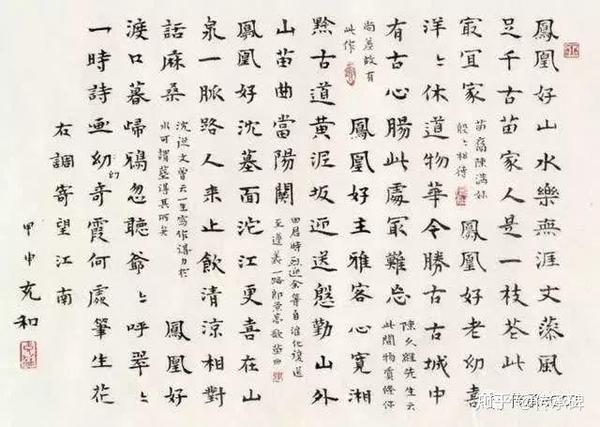 鳳凰好山水樂無涯文藻風
足千古苗家人是一枝花此
最宜家
苗裔陳滿妹
殷〻相待
鳳凰好老幼喜
洋〻休道物華今勝古古城中
有古心腸此處最難忘
陳久經先生云
此間物質條件
尚差故有
此作
鳳凰好主雅客心寬湘
黔古道黄泥坂迎送慇勤山外
山苗曲當陽關
田君時烈迎余等自淮化護送
至遵義一路郎高歌苗曲
鳳凰好沈墓面沱江更喜在山
泉一脈路人来止飲清涼相對
話麻桑
沈從文曾云一生寫作得力於
水可謂墓得其所矣
鳳凰好
渡口暮歸鴉忽聽爺〻呼翠〻
一時詩画幼奇霞何處筆生花
幻
右調寄望江南
甲申充和
知乎 @传承碑